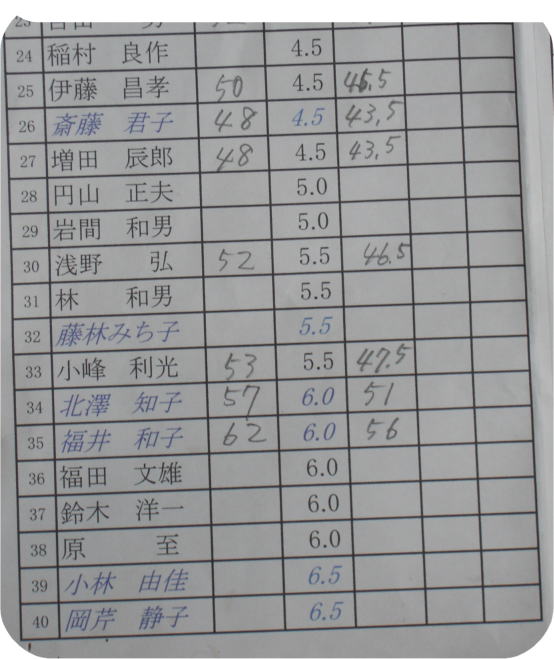 24 稲村 良作 4.5
25 伊藤 昌孝 50 4.5 45.5
26 斎藤 君子 48 4.5 43.5
27 増田 辰郎 48 4.5 43.5
28 円山 正夫 5.0
29 岩間 和男 5.0
30 浅野 弘 52 5.5 46.5
31 林 和男 5.5
32 藤林みち子 5.5
33 小峰 利光 53 5.5 47.5
34 北澤 知子 57 6.0 51
35 福井 和子 62 6.0 56
36 福田 文雄 6.0
37 鈴木 洋一 6.0
38 原 至 6.0
39 小林 由佳 6.5
40 岡芹 静子 6.5